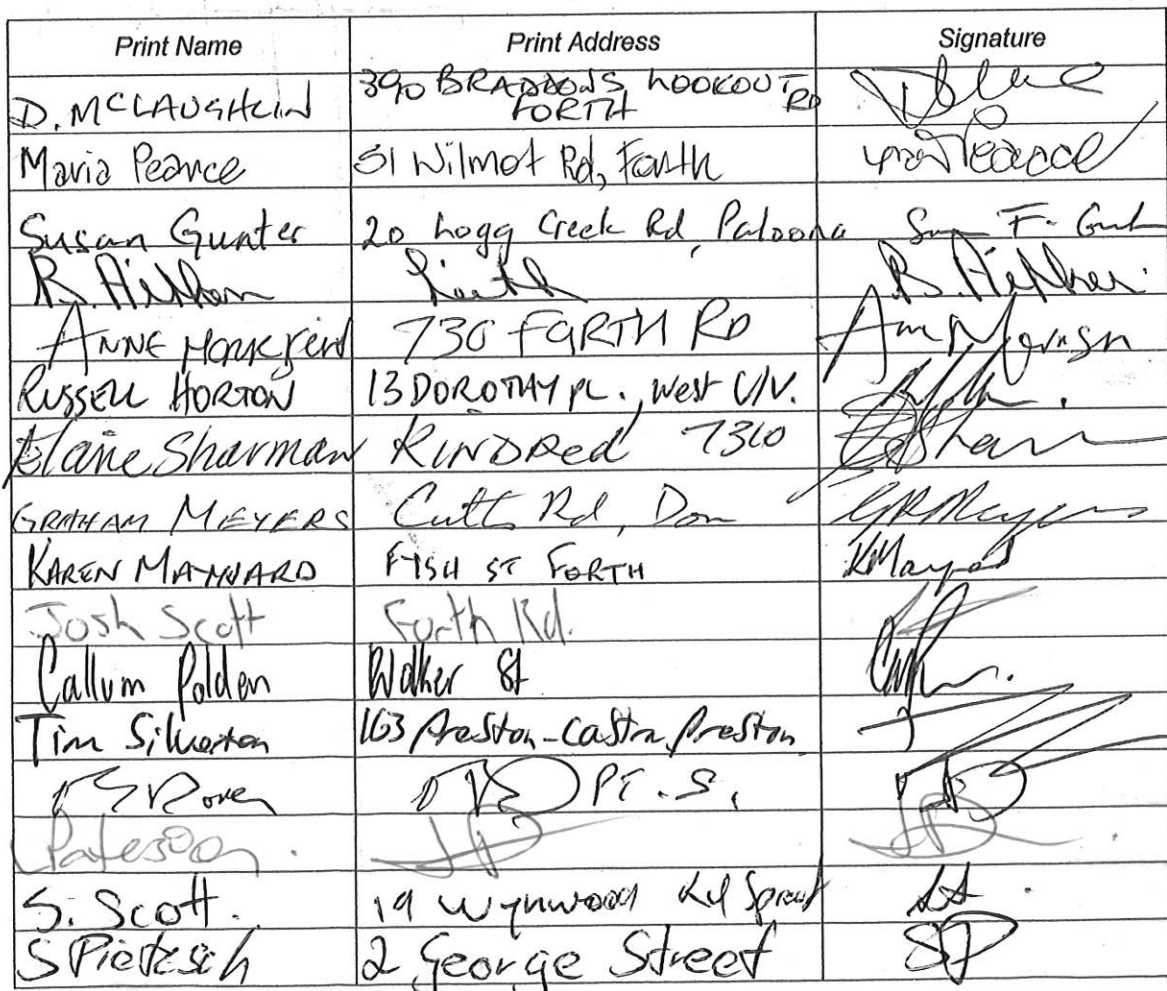 Print Name Print Address Signature
D. MCLAUGHLIN 390 BRADDONS LOOKOUT RD
FORTH
Maria Pearce 51 Wilmot Rd, Forth Pearce
Susan Gunter 20 Logg Creek Rd, Paloona
R. Leith R.
ANNE 730 FORTH RD Ann
RUSSELL HORTON 13 DOROTHY PL., West U/V.
Elaine Sharman KINDRED 7310
GRAHAM MEYERS Cutts Rd, Don GRMeyers
KAREN MAYNARD FISH ST FORTH KMaynard
Josh Scott Forth Rd.
Callum Polden Walker St
Tim Silverton 163 Preston-Castra, Preston
PT. S.
Paterson.
S. Scott. 19 Wynwood Rd
S Pietzsch 2 George Street SP